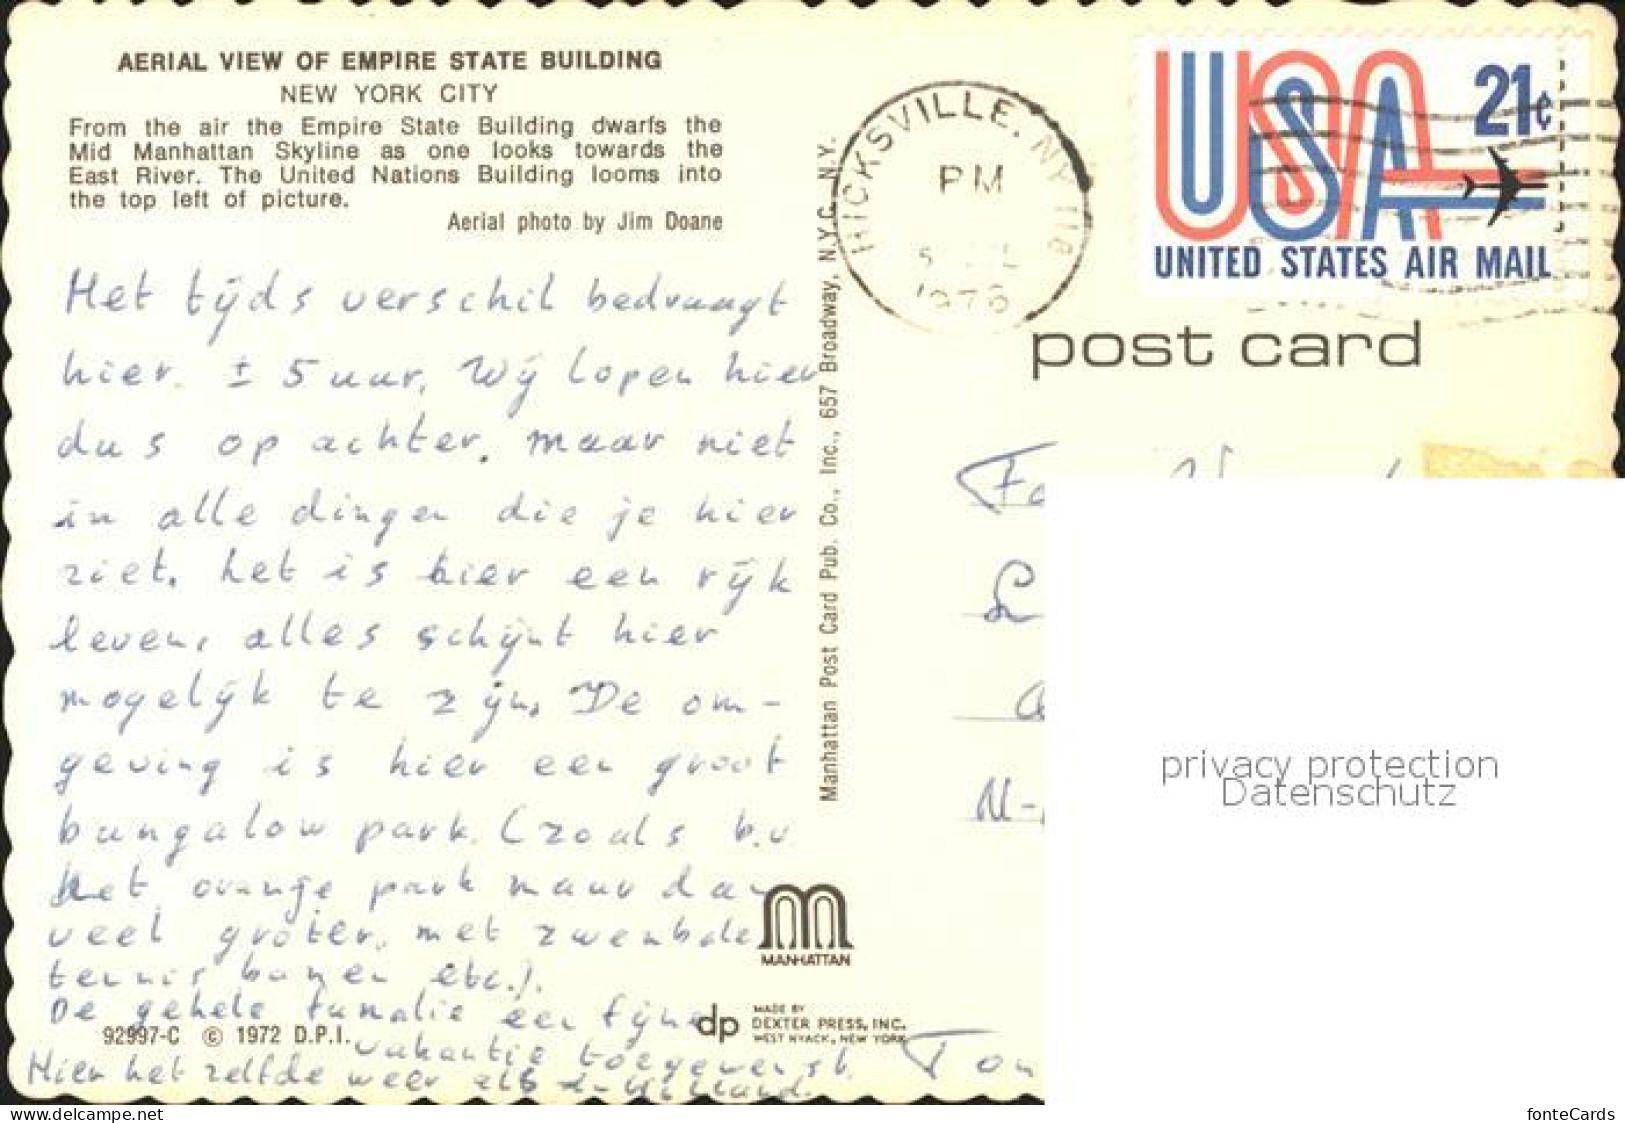 AERIAL VIEW OF EMPIRE STATE BUILDING
NEW YORK CITY
From the air the Empire State Building dwarfs the
Mid Manhattan Skyline as one looks towards the
East River. The United Nations Building looms into
the top left of picture.
Aerial photo by Jim Doane
Het tijds verschil bedraagt
hier. ± 5 uur. Wij lopen hier
dus op achter. maar niet
in alle dingen die je hier
ziet. het is hier een rijk
leven, alles schijnt hier
mogelijk te zijn. De om-
geving is hier een groot
bungalow park. (zoals b.v.
het oranje park maar dan
veel groter. met zwembade
tennis banen etc.).
De gehele familie een fijne
vakantie toegewenst.
Hier het zelfde weer als in Holland.
92997-C © 1972 D.P.I.
Manhattan Post Card Pub. Co., Inc., 657 Broadway, N.Y.C. N.Y.
MANHATTAN
dp
MADE BY
DEXTER PRESS, INC.
WEST NYACK, NEW YORK
HICKSVILLE, NY 118
PM
1976
USA 21¢
UNITED STATES AIR MAIL
post card
Fa
L
N-
Ton
privacy protection
Datenschutz
delcampe.net
fonteCards